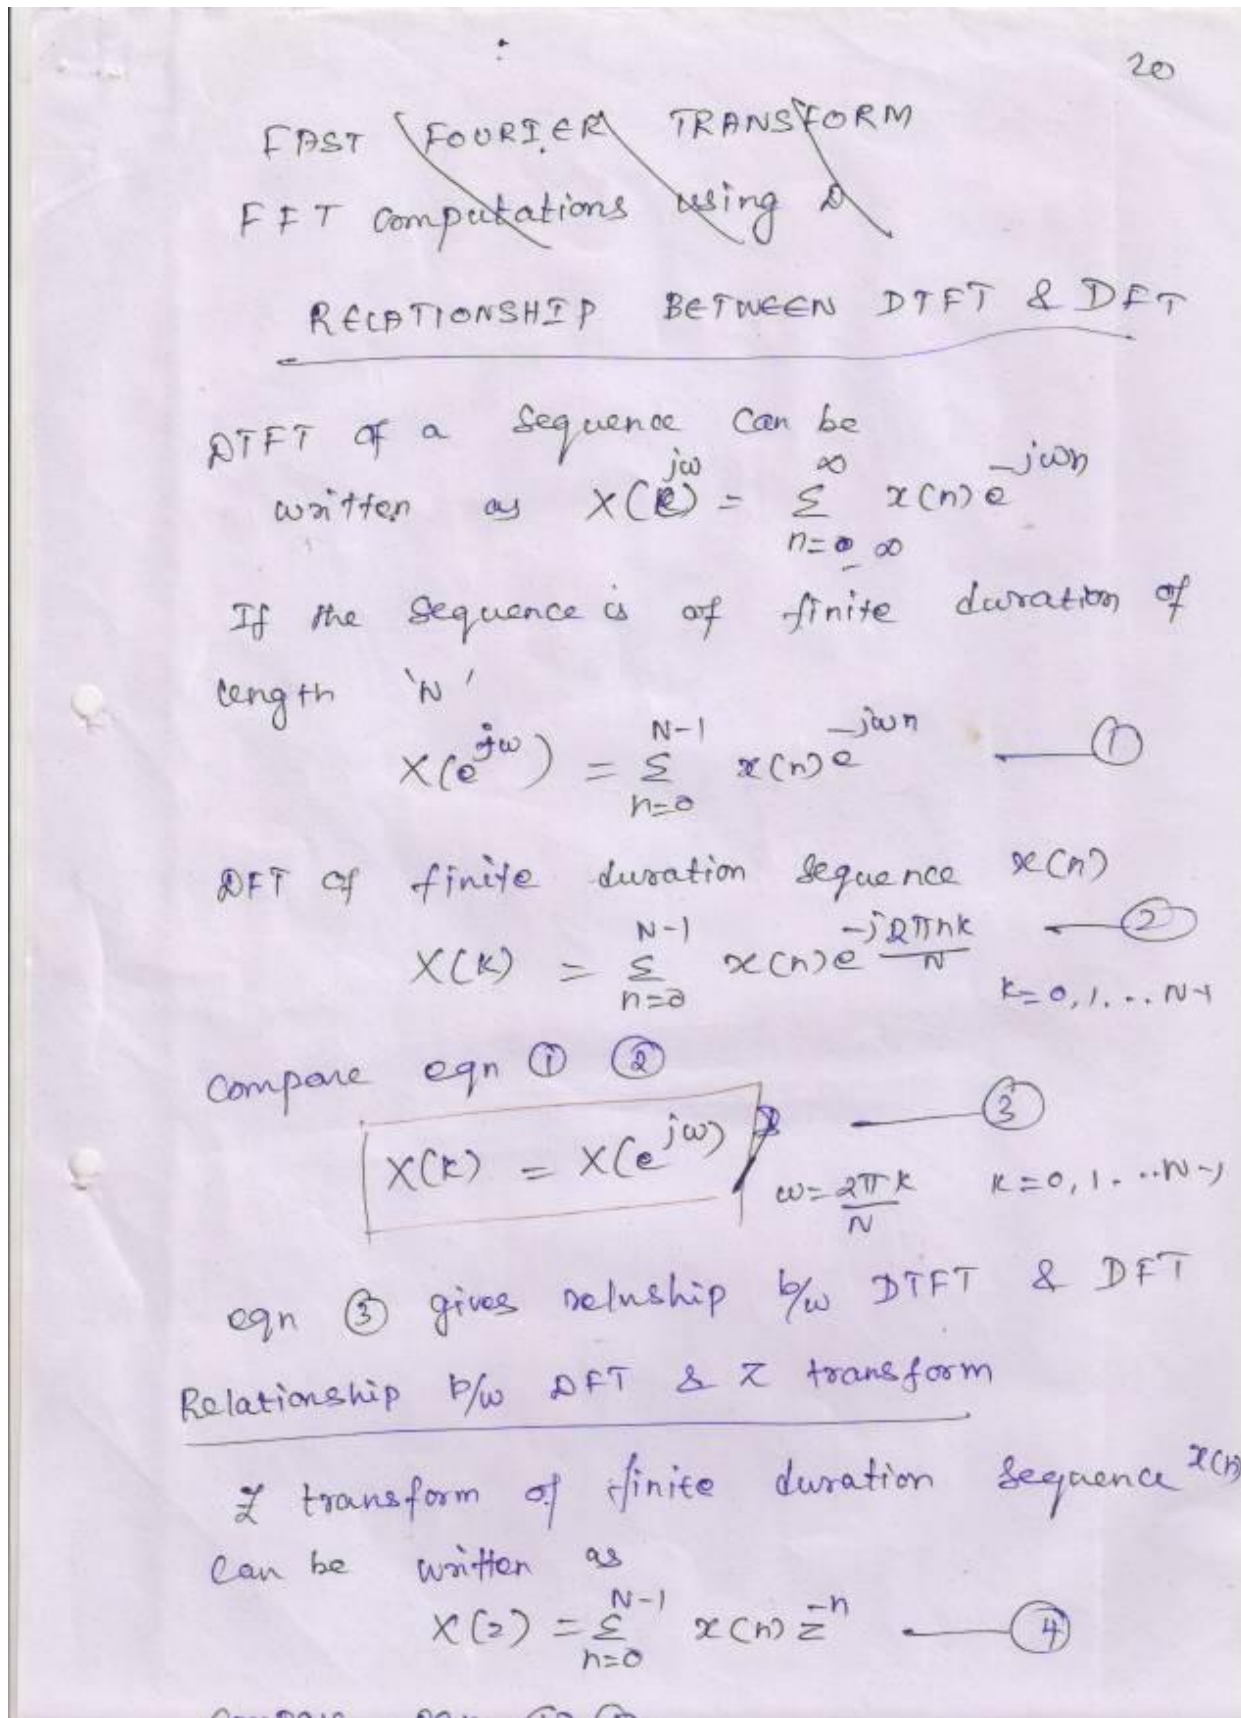 20
FAST FOURIER TRANSFORM
FFT computations using D
RELATIONSHIP BETWEEN DTFT & DFT
DTFT of a Sequence can be
written as X(e^{jω}) = Σ_{n=-∞}^{∞} x(n) e^{-jωn}
If the Sequence is of finite duration of
length 'N'
X(e^{jω}) = Σ_{n=0}^{N-1} x(n) e^{-jωn} — ①
DFT of finite duration Sequence x(n)
X(k) = Σ_{n=0}^{N-1} x(n) e^{-j2πnk/N} — ②
k=0,1...N-1
Compare eqn ① ②
X(k) = X(e^{jω}) — ③
ω=2πk/N k=0,1...N-1
eqn ③ gives relnship b/w DTFT & DFT
Relationship b/w DFT & Z transform
Z transform of finite duration Sequence x(n)
Can be written as
X(z) = Σ_{n=0}^{N-1} x(n) z^{-n} — ④